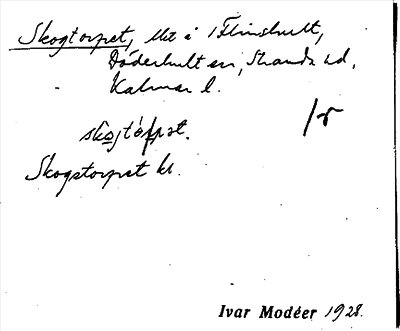 Skogtorpet, lht å 1 Flinshult,
Döderhult sn, Stranda hd,
Kalmar l.
1/r
skojtårpət.
Skogstorpet kl.
Ivar Modéer 1928.